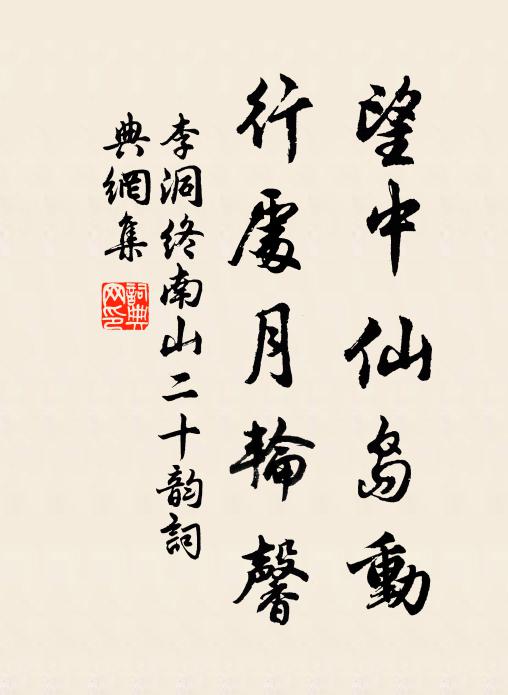 望中仙島動
行處月輪馨
李洞終南山二十韵詞
典網集
詞典
网印